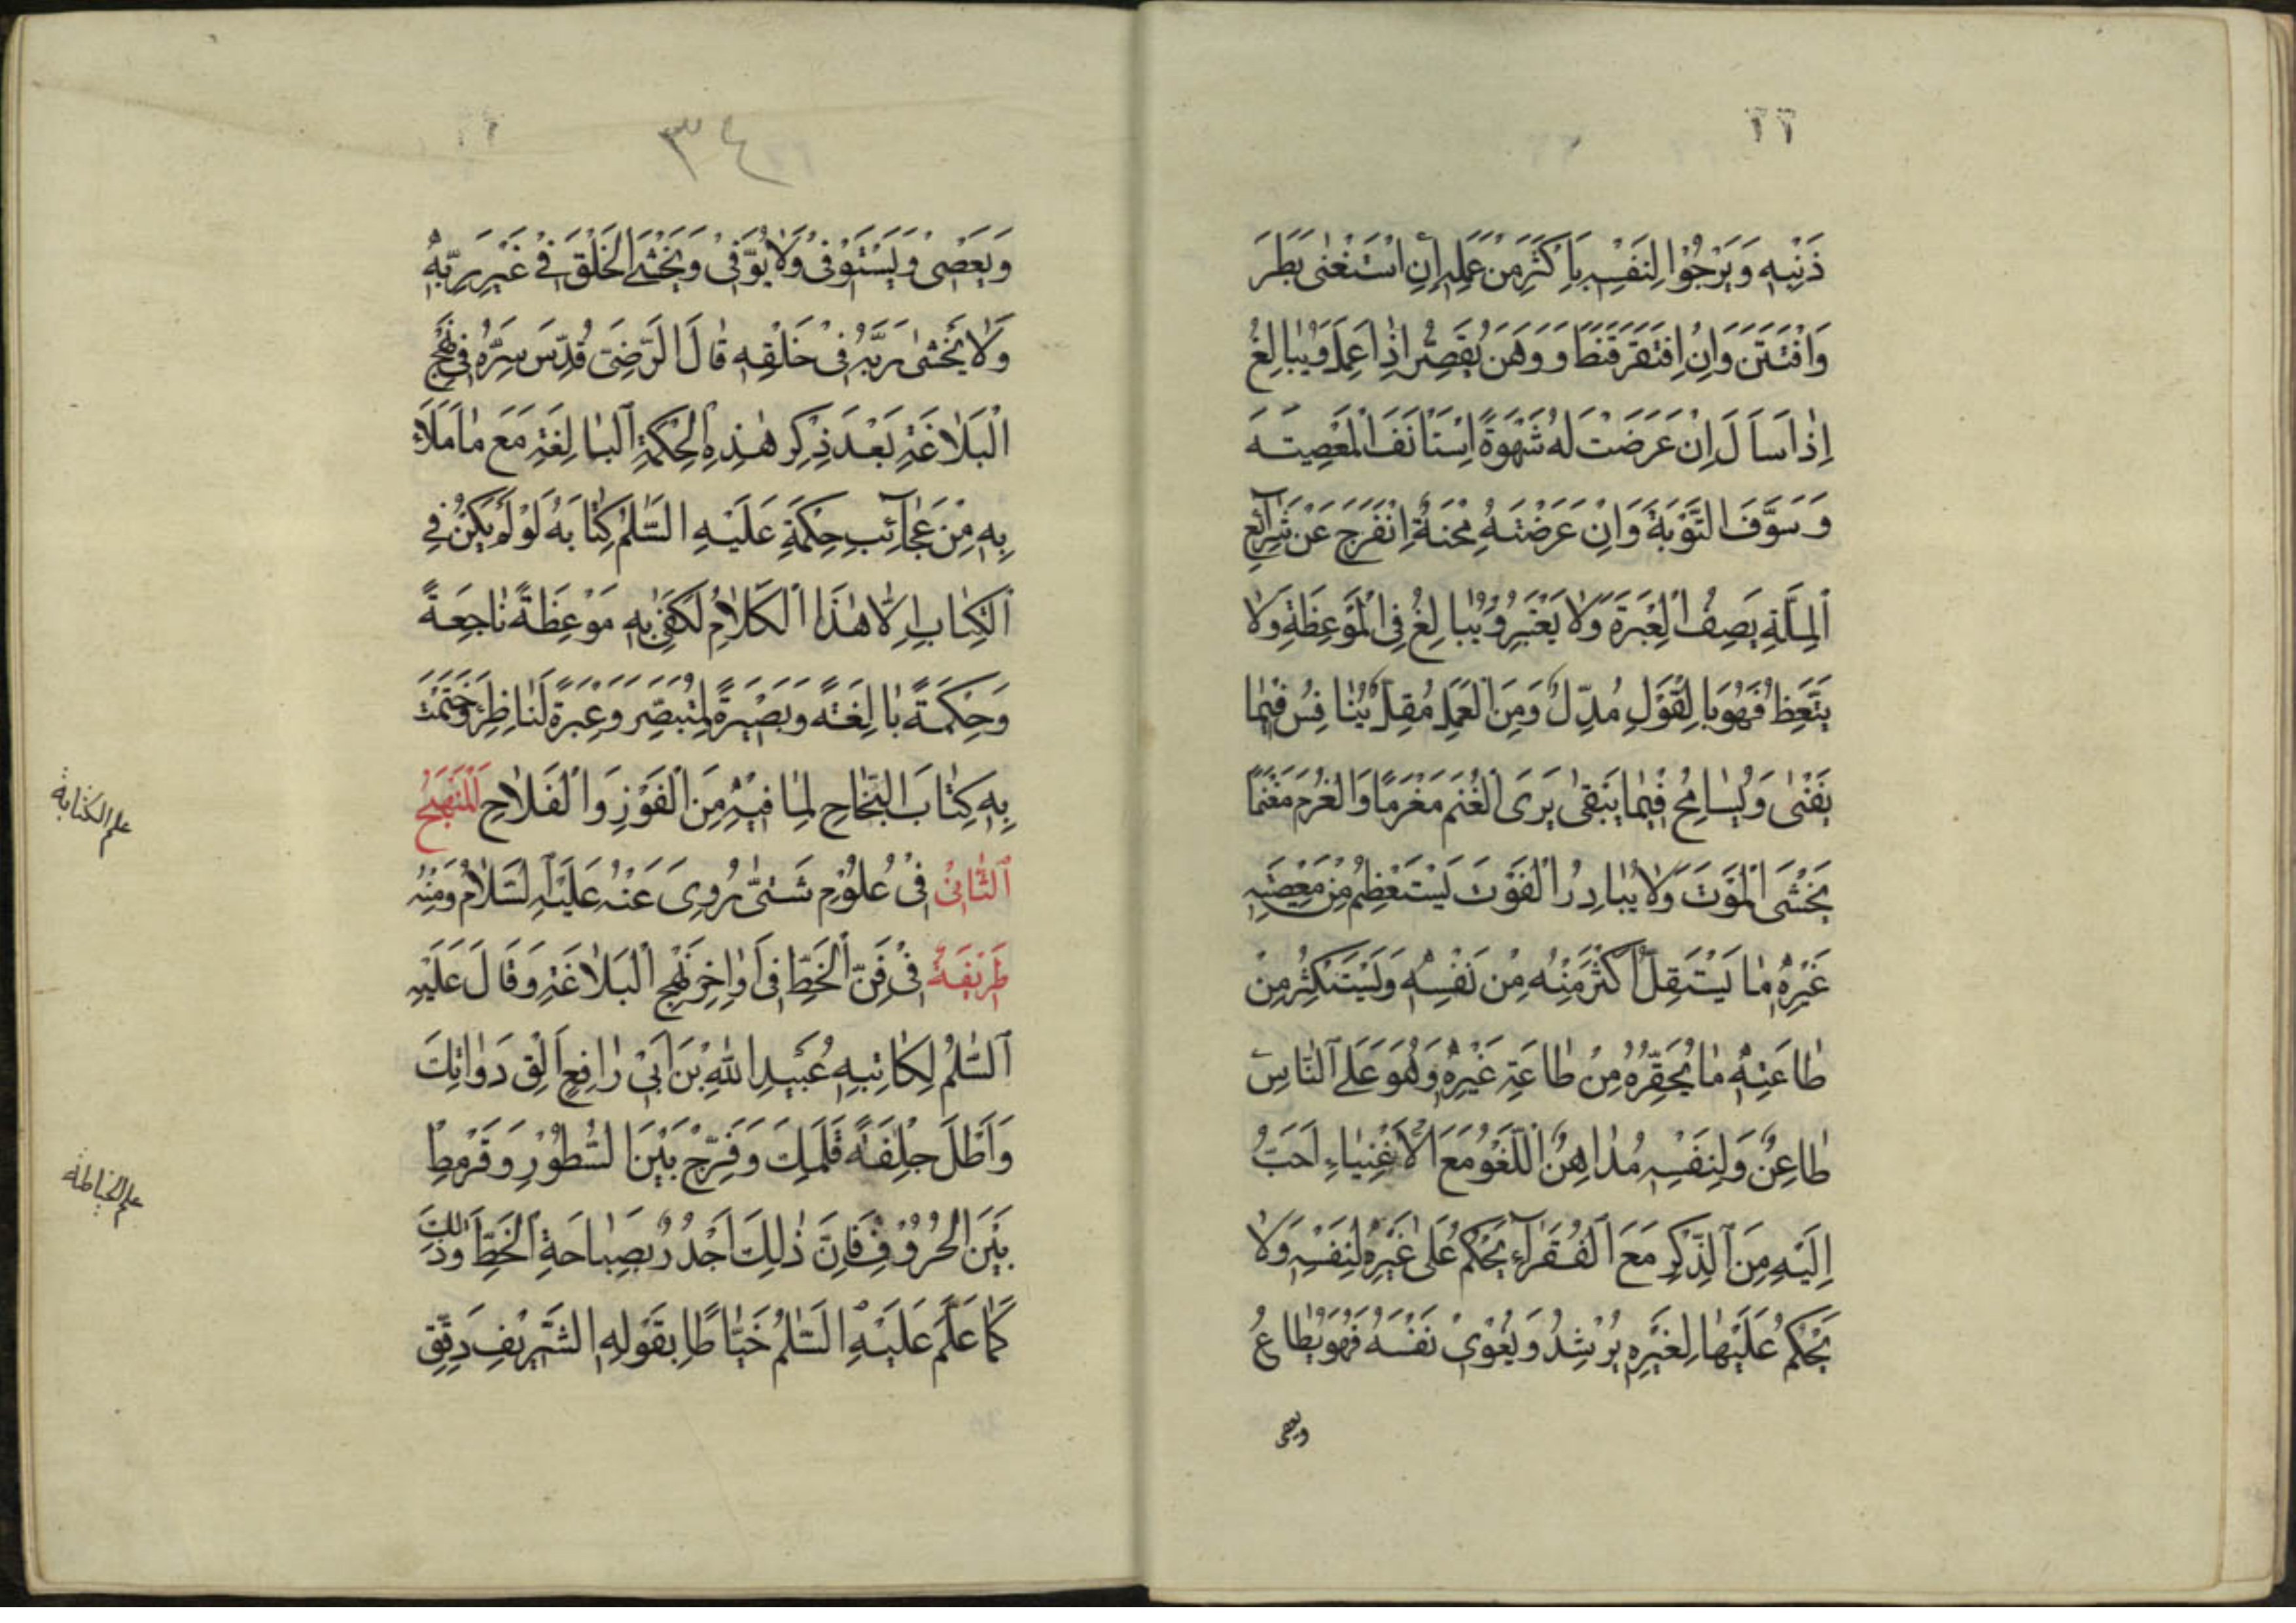 ٣٤
ذَنْبِهِ وَيَرْجُوْا لِنَفْسِهِ بِاَكْثَرِ مِنْ عَمَلِهِ اِنِ اسْتَغْنٰى بَطَرَ
وَافْتَتَنَ وَاِنْ اِفْتَقَرَ قَنَطَ وَوَهَنَ يُقَصِّرُ اِذَا عَمِلَ وَيُبَالِغُ
اِذَا سَاَلَ اِنْ عَرَضَتْ لَهُ شَهْوَةً اِسْتَانَفَ الْمَعْصِيَتَهَ
وَسَوَّفَ التَّوْبَةَ وَاِنْ عَرَضَتْهُ مِحْنَةٌ اِنْفَرَجَ عَنْ شَرَآئِعِ
الْمِلَّةِ يَصِفُ الْعِبْرَةَ وَلَا يَعْتَبِرُ وَيُبَالِغُ فِى الْمَوْعِظَةِ وَلَا
يَتَّعِظُ فَهُوَ بِالْقَوْلِ مُدِلٌّ وَمِنَ الْعَمَلِ مُقِلٌّ يُنَافِسُ فِيْمَا
يَفْنٰى وَيُسَامِحُ فِيْمَا يَبْقٰى يَرَى الْغُنْمَ مَغْرَمًا وَالْغُرْمَ مَغْنَمًا
يَخْشَى الْمَوْتَ وَلَا يُبَادِرُ الْفَوْتَ يَسْتَعْظِمُ مِنْ مَعْصِيَتِهِ
غَيْرِهِ مَا يَسْتَقِلُّ اَكْثَرَ مِنْهُ مِنْ نَفْسِهِ وَيَسْتَكْثِرُ مِنْ
طَاعَتِهِ مَا يُحَقِّرُهُ مِنْ طَاعَةِ غَيْرِهِ وَهُوَ عَلَى النَّاسِ
طَاعِنٌ وَلِنَفْسِهِ مُدَاهِنٌ اللَّغْوُ مَعَ الْاَغْنِيَاءِ اَحَبُّ
اِلَيْهِ مِنَ الذِّكْرِ مَعَ الْفُقَرَآءِ يَحْكُمُ عَلٰى غَيْرِهِ لِنَفْسِهِ وَلَا
يَحْكُمُ عَلَيْهَا لِغَيْرِهِ يُرْشِدُ وَيُغْوِىْ نَفْسَهُ فَهُوَ يُطَاعُ
ويعصى
وَيَعْصِىْ وَيَسْتَوْفِىْ وَلَا يُوَفِّىْ وَيَخْشَى الْخَلْقَ فِىْ غَيْرِ رَبِّهِ
وَلَا يَخْشٰى رَبَّهُ فِىْ خَلْقِهِ قَالَ الرَّضِىَ قُدِّسَ سِرُّهُ فِىْ نَهْجِ
الْبَلَاغَةِ بَعْدَ ذِكْرِ هٰذِهِ الْحِكْمَةِ الْبَالِغَةِ مَعَ مَا مَلَاَ
بِهِ مِنْ عَجَآئِبِ حِكَمِهِ عَلَيْهِ السَّلٰمُ كِتَابَهُ لَوْ لَمْ يَكُنْ فِى
الْكِتَابِ اِلَّا هٰذَا الْكَلَامُ لَكَفٰى بِهِ مَوْعِظَةً نَاجِعَةً
وَحِكْمَةً بَالِغَتَةً وَبَصِيْرَةً لِمُتَبَصِّرٍ وَعِبْرَةً لِنَاظِرٍ وَخَتَمْتُ
بِهِ كِتَابَ النَّجَاحِ لِمَا فِيْهِ مِنَ الْفَوْزِ وَالْفَلَاحِ اَلْمَنْهَجُ
اَلثَّانِىْ فِىْ عُلُوْمٍ شَتّٰى رُوِىَ عَنْهُ عَلَيْهِ السَّلَامُ وَمِنْهُ
طَرِيْفَةٌ فِىْ فَنِّ الْخَطِّ فِىْ اَوَاخِرِ نَهْجِ الْبَلَاغَةِ وَقَالَ عَلَيْهِ
السَّلٰمُ لِكَاتِبِهِ عُبَيْدِ اللّٰهِ بْنِ اَبِىْ رَافِعٍ اَلِقْ دَوَاتَكَ
وَاَطِلْ جِلْفَةَ قَلَمِكَ وَفَرِّجْ بَيْنَ السُّطُوْرِ وَقَرْمِطْ
بَيْنَ الْحُرُوْفِ فَاِنَّ ذٰلِكَ اَجْدَرُ بِصَبَاحَةِ الْخَطِّ وَذٰلِكَ
كَمَا عَلَّمَ عَلَيْهِ السَّلٰمُ خَيَّاطًا بِقَوْلِهِ الشَّرِيْفِ دَقِّقِ
علم الكتابة
علم الخياطة